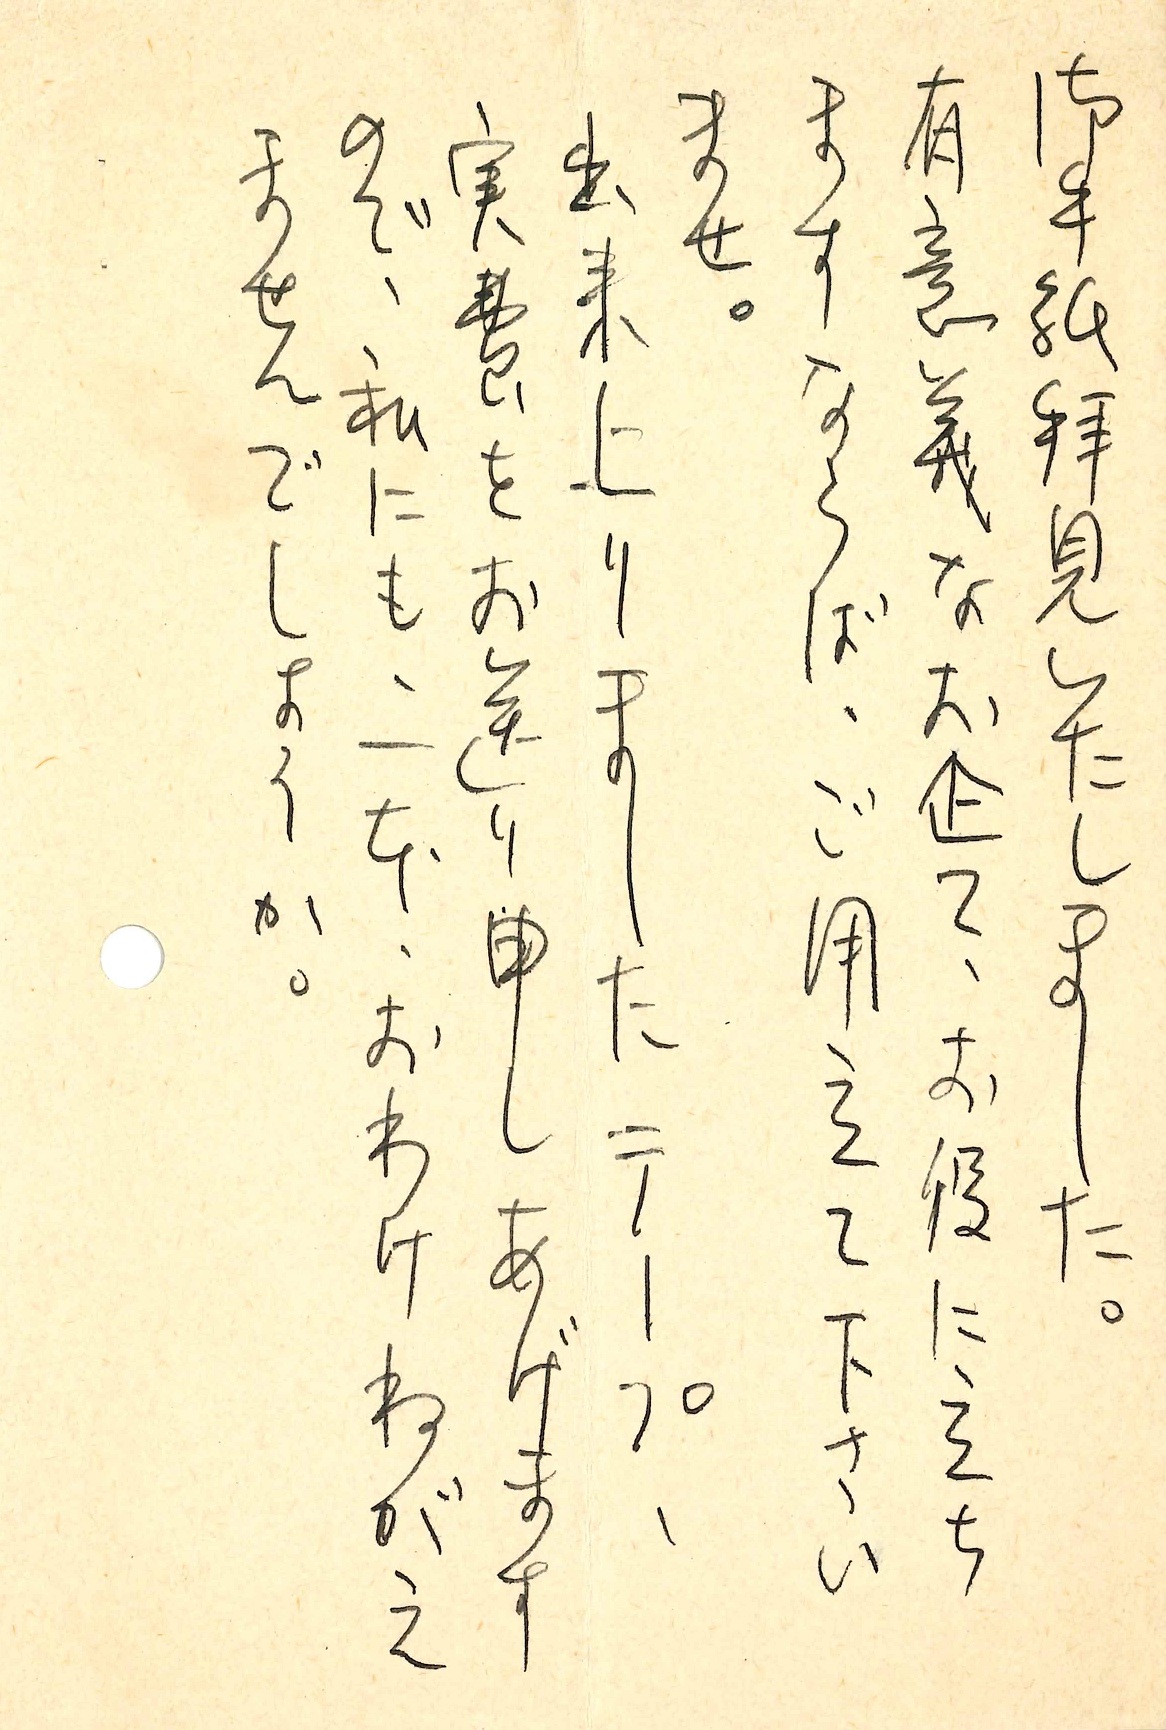 御手紙拝見いたしました。
有意義なお企て、お役に立ち
ますならば、ご用立て下さい
ませ。
出来上りましたテープ、
実費をお送り申しあげます
ので、私にも、一本、おわけねがえ
ませんでしょうか。